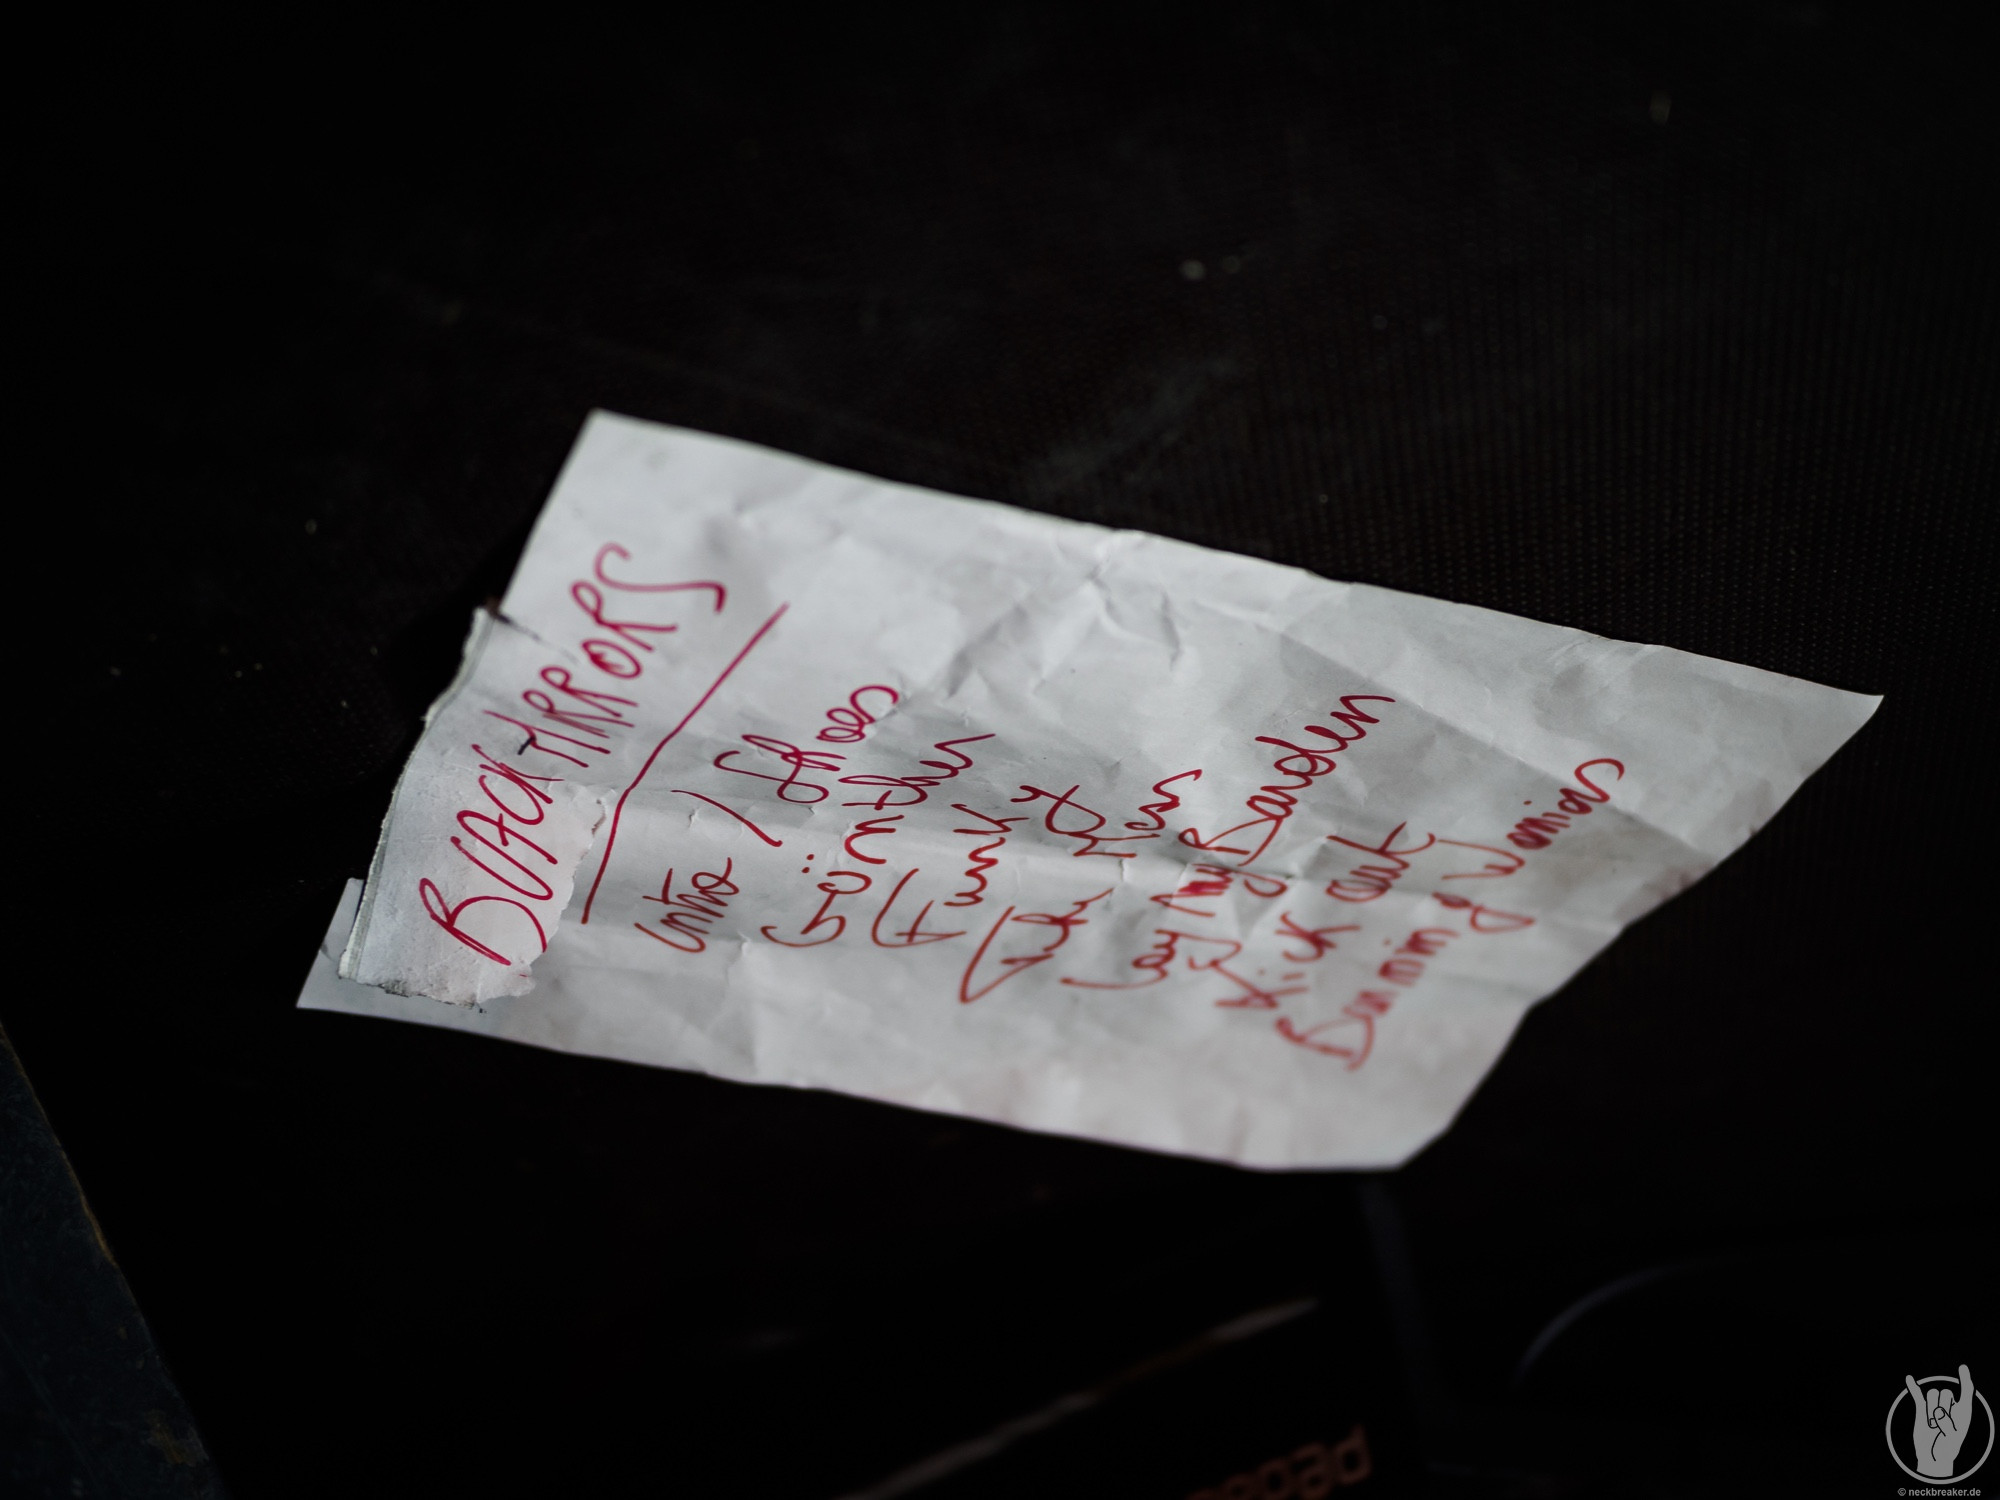 BLACK MIRRORS
Intro / Shoes
Günther
Funky
Lay My Burden
Kick out
Burning Warriors
© neckbreaker.de